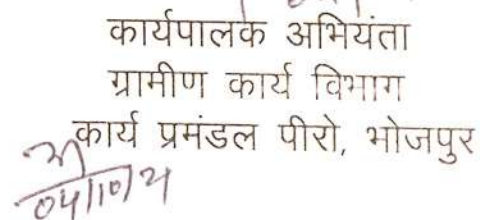 कार्यपालक अभियंता
ग्रामीण कार्य विभाग
कार्य प्रमंडल पीरो, भोजपुर
04/10/21